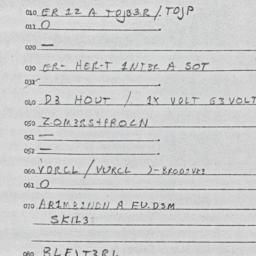 010 ER 1Z A TOJB3R / TOJP
011 O
020 —
030 ER- HER-T 1NT3R A SOT
031
040 D3 HOUT / 1X VOLT G3VOLT
050 ZOM3RS+PROCN
051 —
052 —
060 VORCL / VURCL )-BROOJVR3
061 O
070 AR1M31NDN A EU.D3M
SK1L3
080 BLFJT3RL